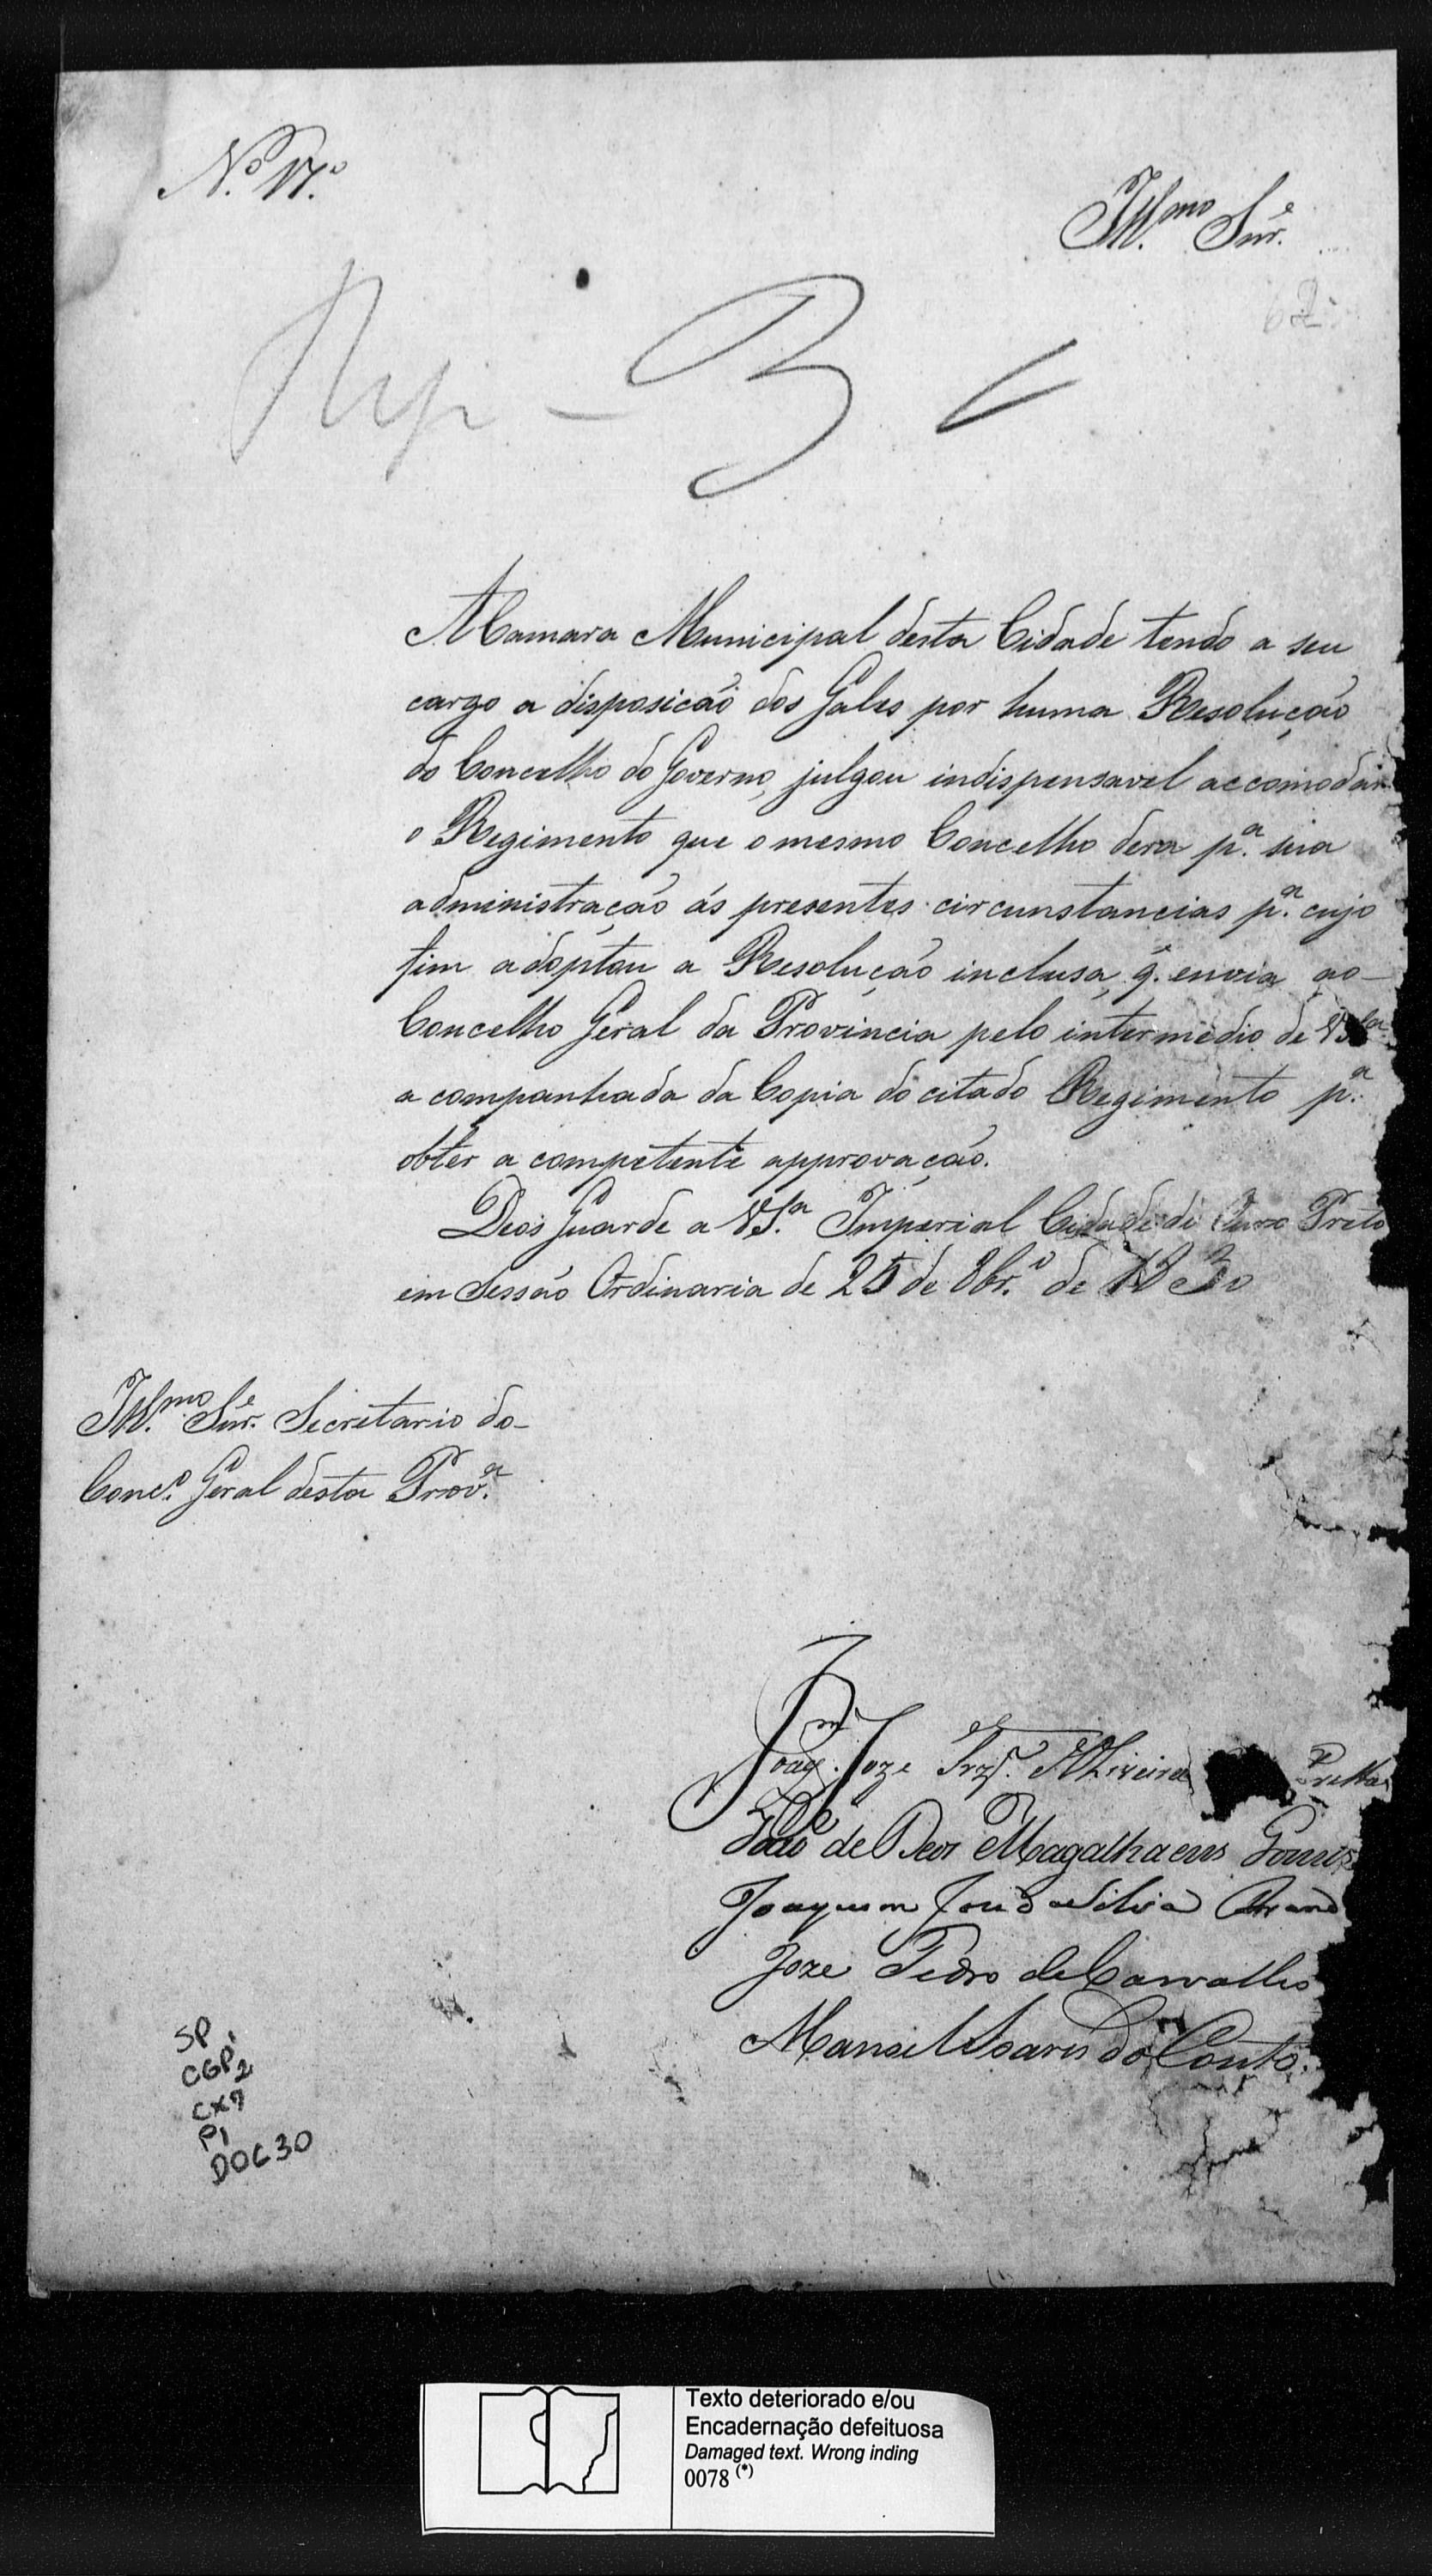 Nº 17.º
Illmo Snr.e
A Camara Municipal desta Cidade tendo a seu
cargo a disposição dos Gales por huma Resolução
do Concelho do Governo, julgou indispensavel accomodar
o Regimento que o mesmo Concelho dera p.ª sua
administração ás presentes circunstancias p.ª cujo
fim adoptou a Resolução inclusa, q. envia ao
Concelho Geral da Provincia pelo intermedio de VS.ª
acompanhada da Copia do citado Regimento p.ª
obter a competente approvação.
Deos Guarde a VS.ª Imperial Cidade de Ouro Preto
em Sessão Ordinaria de 25 de 8br.º de 1830
Illmo Snr.e Secretario do
Conc.º Geral desta Prov.ª
Joaq.m Joze
João de Deos Magalhaens Gomes
Joaquim José da Silva
Joze Pedro de Carvalho
Manoel Soares do Couto
SP
CGP 2
CX7
P1
DOC 30
Texto deteriorado e/ou
Encadernação defeituosa
Damaged text. Wrong inding
0078 (*)